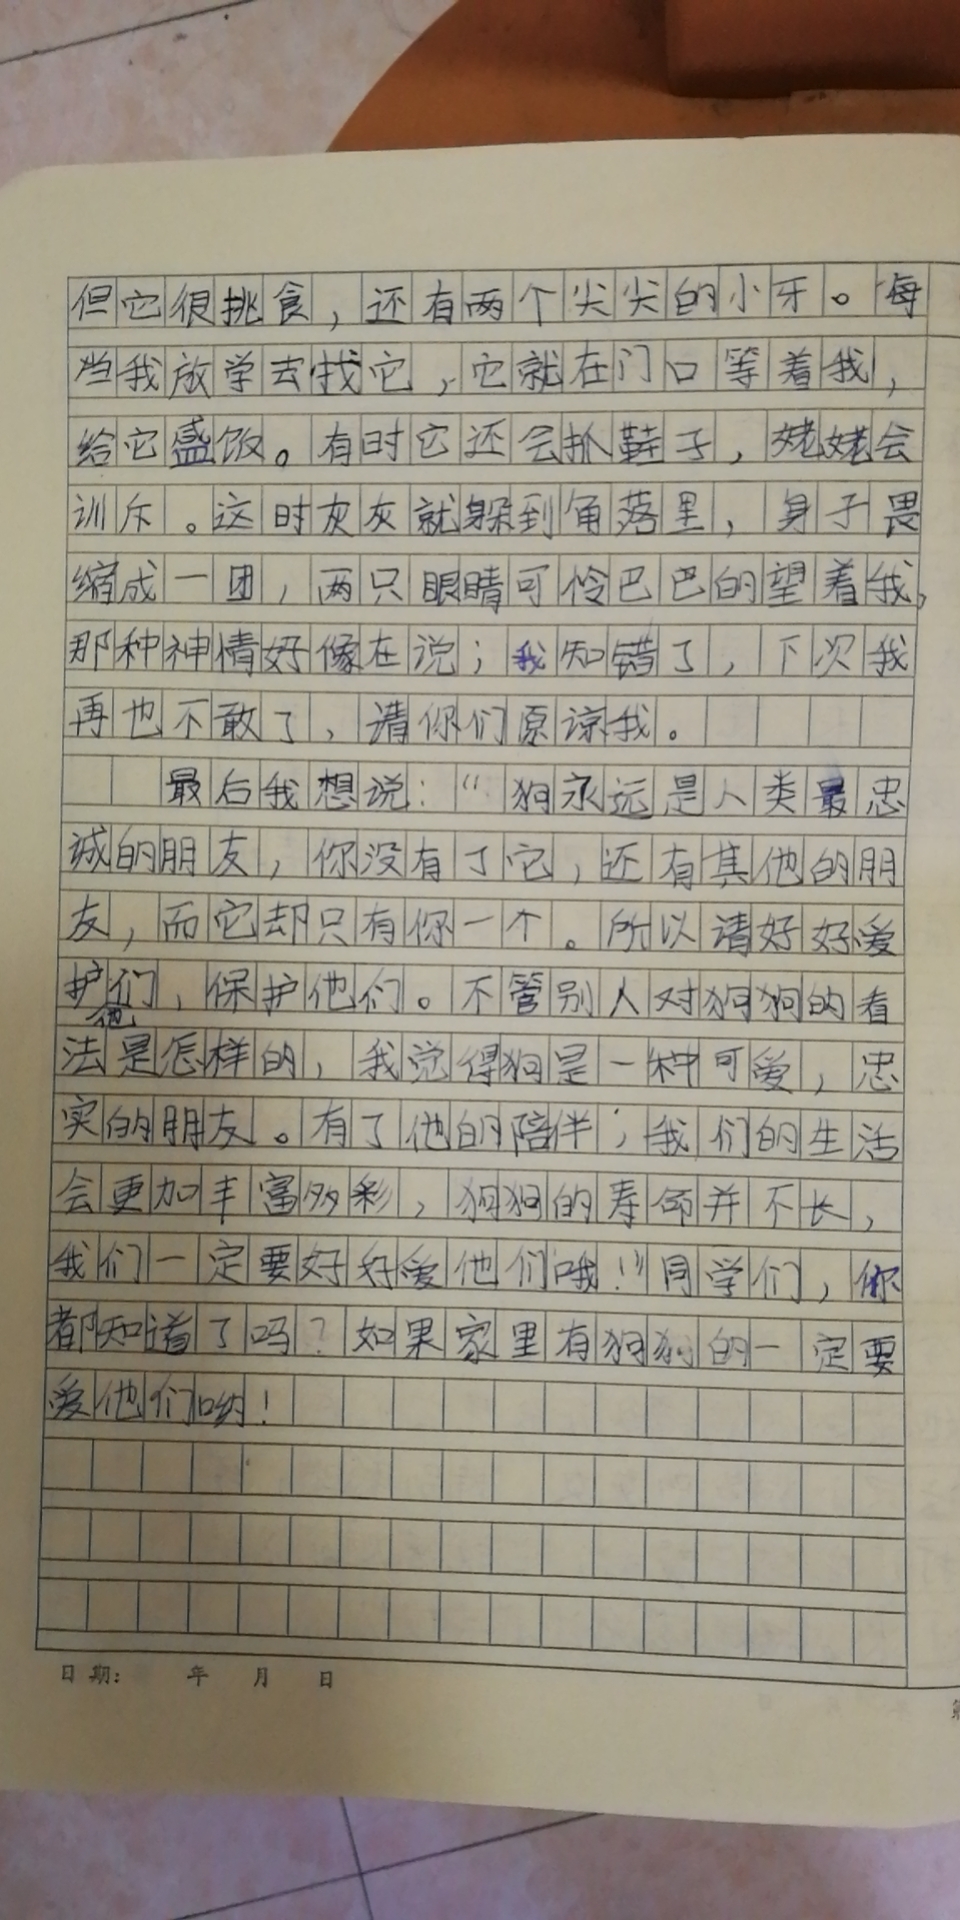 但它很挑食，还有两个尖尖的小牙。每
当我放学去找它，它就在门口等着我，
给它盛饭。有时它还会抓鞋子，姥姥会
训斥。这时灰灰就躲到角落里，身子畏
缩成一团，两只眼睛可怜巴巴的望着我，
那种神情好像在说；我知错了，下次我
再也不敢了，请你们原谅我。
最后我想说：“狗永远是人类最忠
诚的朋友，你没有了它，还有其他的朋
友，而它却只有你一个。所以请好好爱
护他们，保护他们。不管别人对狗狗的看
法是怎样的，我觉得狗是一种可爱，忠
实的朋友。有了他的陪伴；我们的生活
会更加丰富多彩，狗狗的寿命并不长，
我们一定要好好爱他们哦！”同学们，你
都知道了吗？如果家里有狗狗的一定要
爱他们哟！
日期： 年 月 日